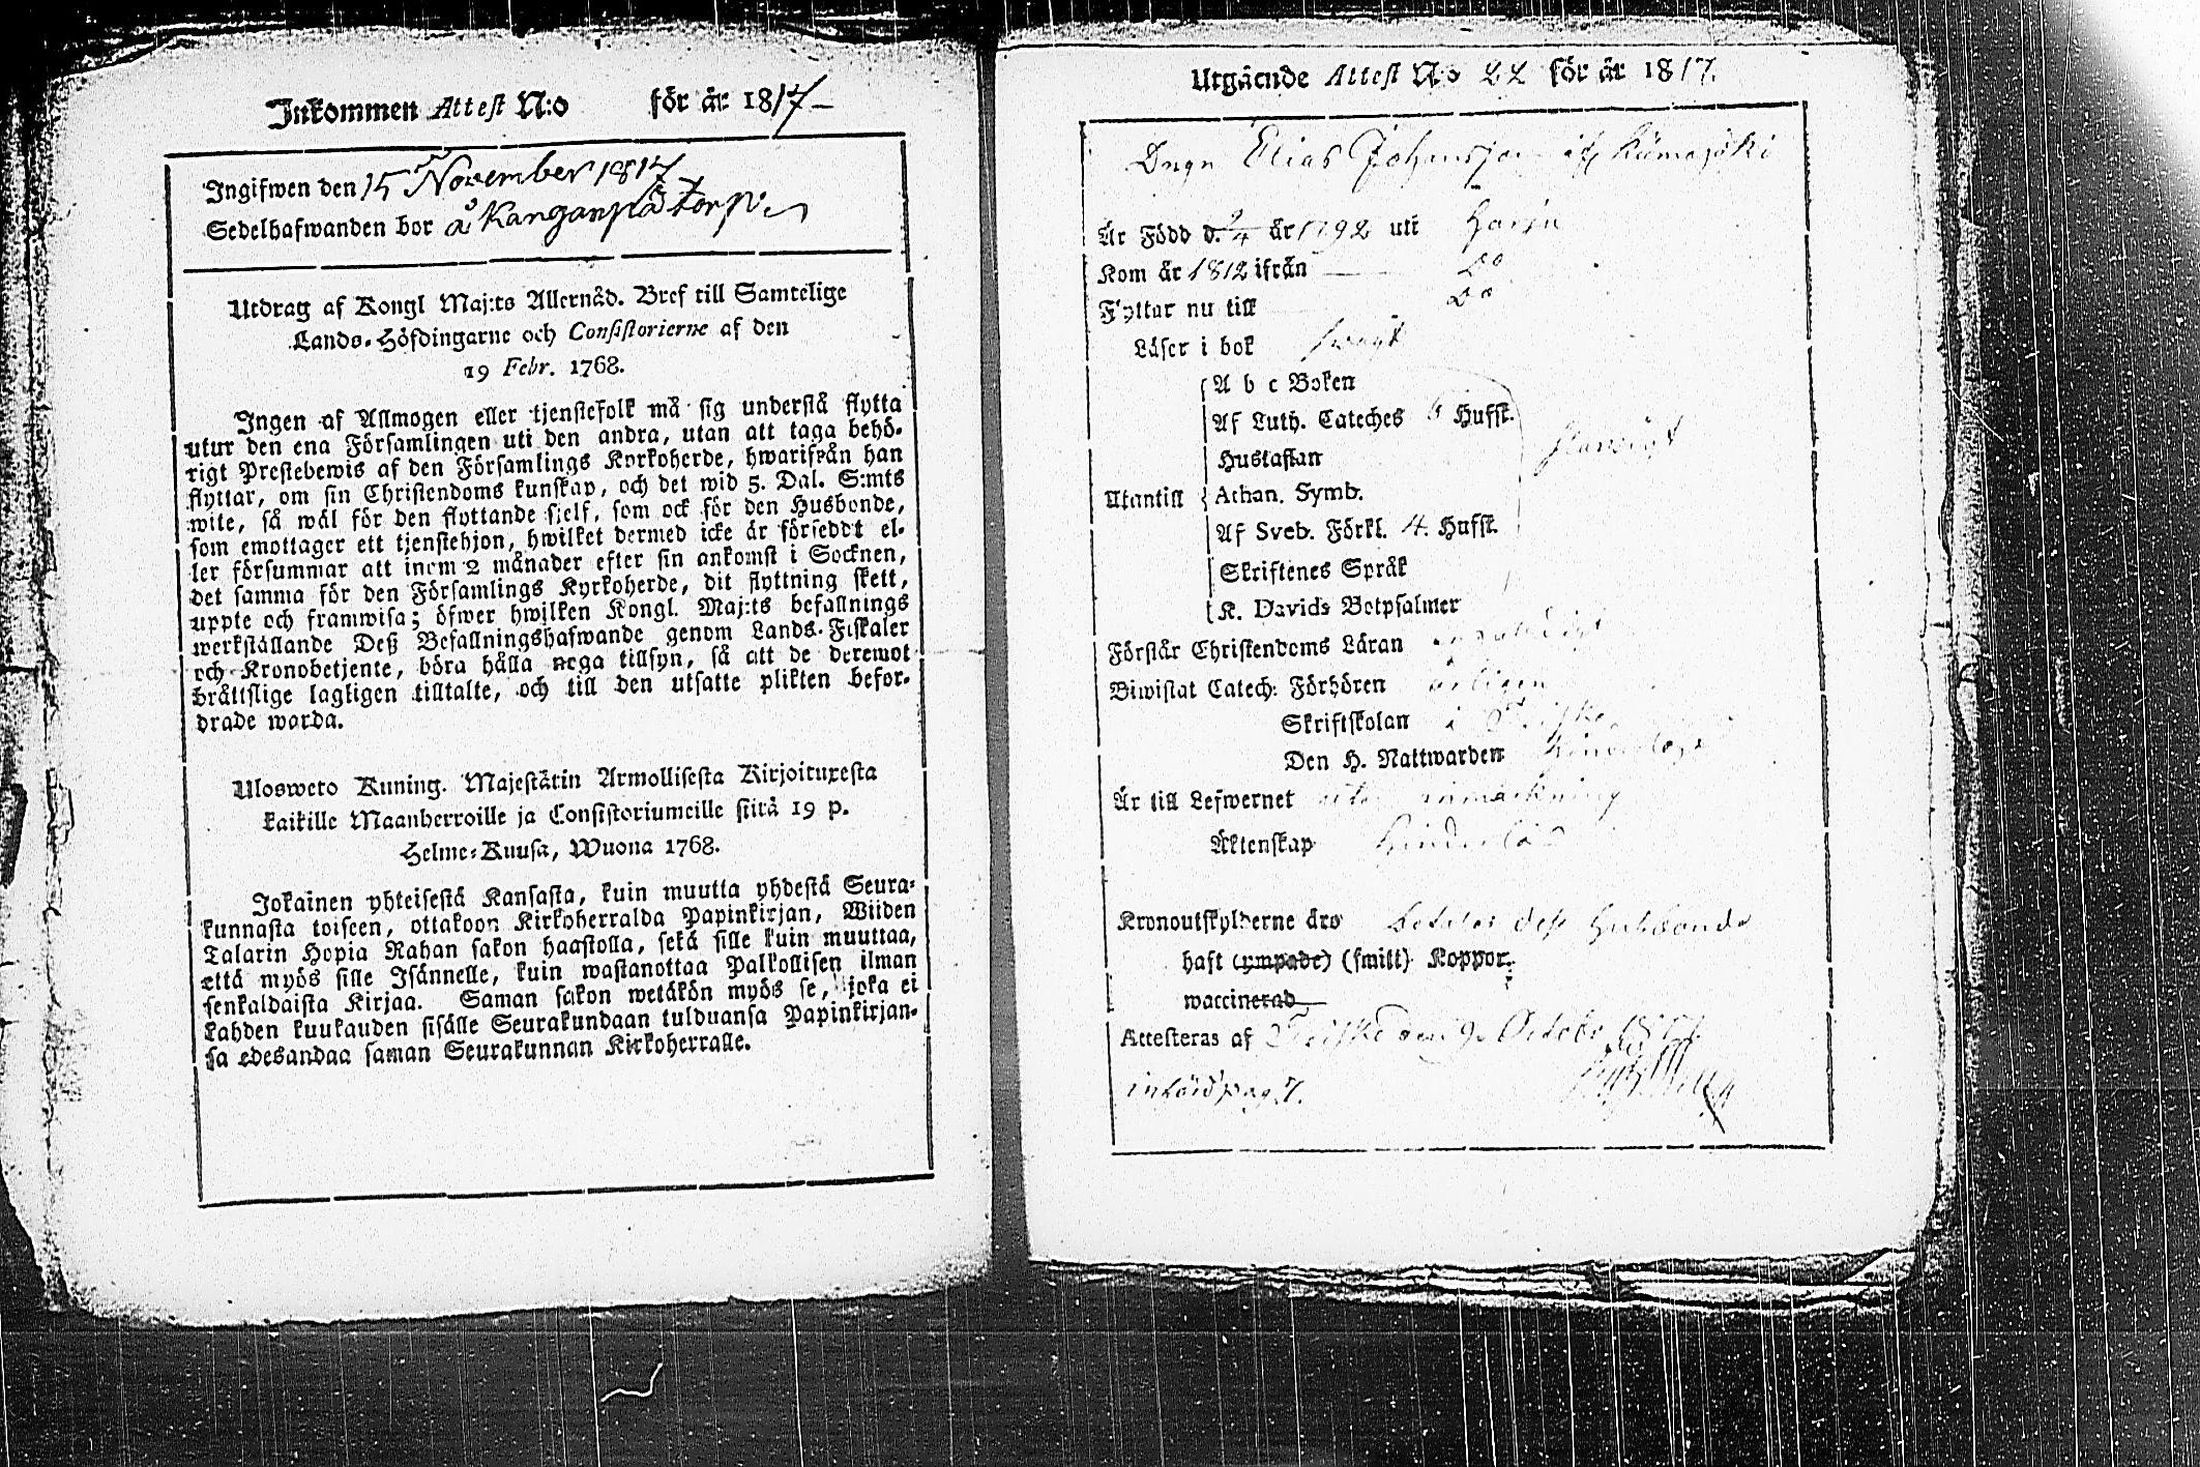 Inkommen Attest N:o för år 1817
Ingifwen den 15 November 1817
Sedelhafwanden bor å Kanganpää torp
Utdrag af Kongl Maj:ts Allernåd. Bref till Samtelige
Lands-Höfdingarne och Consistorierne af den
19 Febr. 1768.
Ingen af Allmogen eller tjenstefolk må sig understå flytta
utur den ena Församlingen uti den andra, utan att taga behö-
rigt Prestebewis af den Församlings Kyrkoherde, hwarifrån han
flyttar, om sin Christendoms kunskap, och det wid 5. Dal. S:mts
wite, så wäl för den flyttande sjelf, som ock för den Husbonde,
som emottager ett tjenstehjon, hwilket dermed icke är försedt el-
ler försummar att inom 2 månader efter sin ankomst i Socknen,
det samma för den Församlings Kyrkoherde, dit flyttning skett,
uppte och framwisa; öfwer hwilken Kongl. Maj:ts befallnings
werkställande Deß Befallningshafwande genom Lands-Fiskaler
och Kronobetjente, böra hålla noga tillsyn, så att de deremot
bråttslige lagligen tilltalte, och till den utsatte plikten befor-
drade warda.
Ulosweto Kuning. Majestätin Armollisesta Kirjoituxesta
kaikille Maanherroille ja Consistoriumeille siitä 19 p.
Helme-Kuusa, Wuona 1768.
Jokainen yhteisestä Kansasta, kuin muutta yhdestä Seura-
kunnasta toiseen, ottakoon Kirkoherralda Papinkirjan, Wiiden
Talarin Hopia Rahan sakon haastolla, sekä sille kuin muuttaa,
että myös sille Isännelle, kuin wastanottaa Palkollisen ilman
senkaldaista Kirjaa. Saman sakon wetäkön myös se, joka ei
kahden kuukauden sisälle Seurakundaan tulduansa Papinkirjan-
sa edesandaa saman Seurakunnan Kirkoherralle.
Utgående Attest N:o 22 för år 1817.
Drgn Elias Johansson
Är Född d. 9/4 år 1792 uti Harju
Kom år 1812 ifrån Do
Flyttar nu till Do
Läser i bok swagt
A b c Boken
Af Luth. Cateches 5 Hufst.
Hustaflan
Utantill Athan. Symb.
Af Sveb. Förkl. 4. Hufst.
Skriftenes Språk
K. Davids Botpsalmer
Förstår Christendoms Läran
Biwistat Catech: Förhören årligen
Skriftskolan
Den H. Nattwarden
Är till Lefwernet utan anmärkning
Äktenskap hinderlös
Kronoutskylderne äro betalas dess husbonde
haft (ympade) (smitt) Koppor.
waccinerad
Attesteras af October 1817
införd pag. 7.